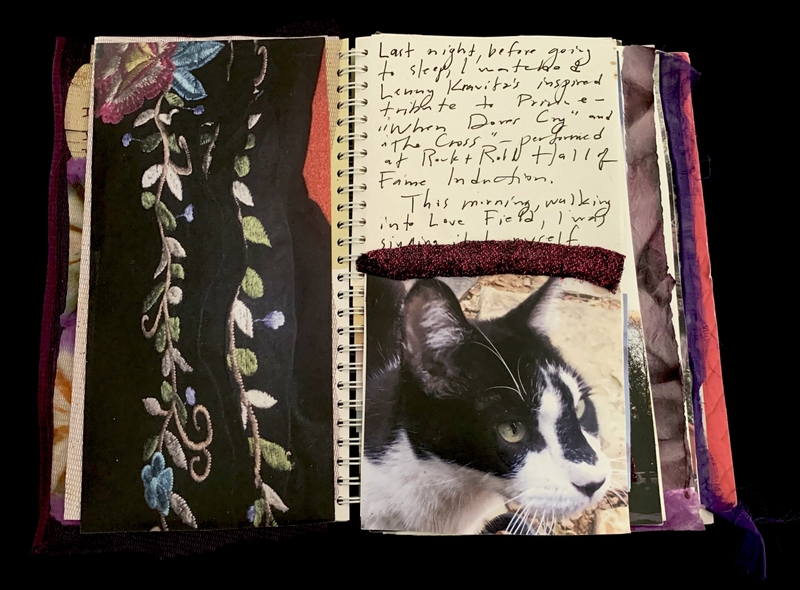 Last night, before going
to sleep, I watched
Lenny Kravitz's inspired
tribute to Prince –
"When Doves Cry" and
"The Cross" – performed
at Rock + Roll Hall of
Fame Induction.
This morning, walking
into Love Field, I was
singing it to myself